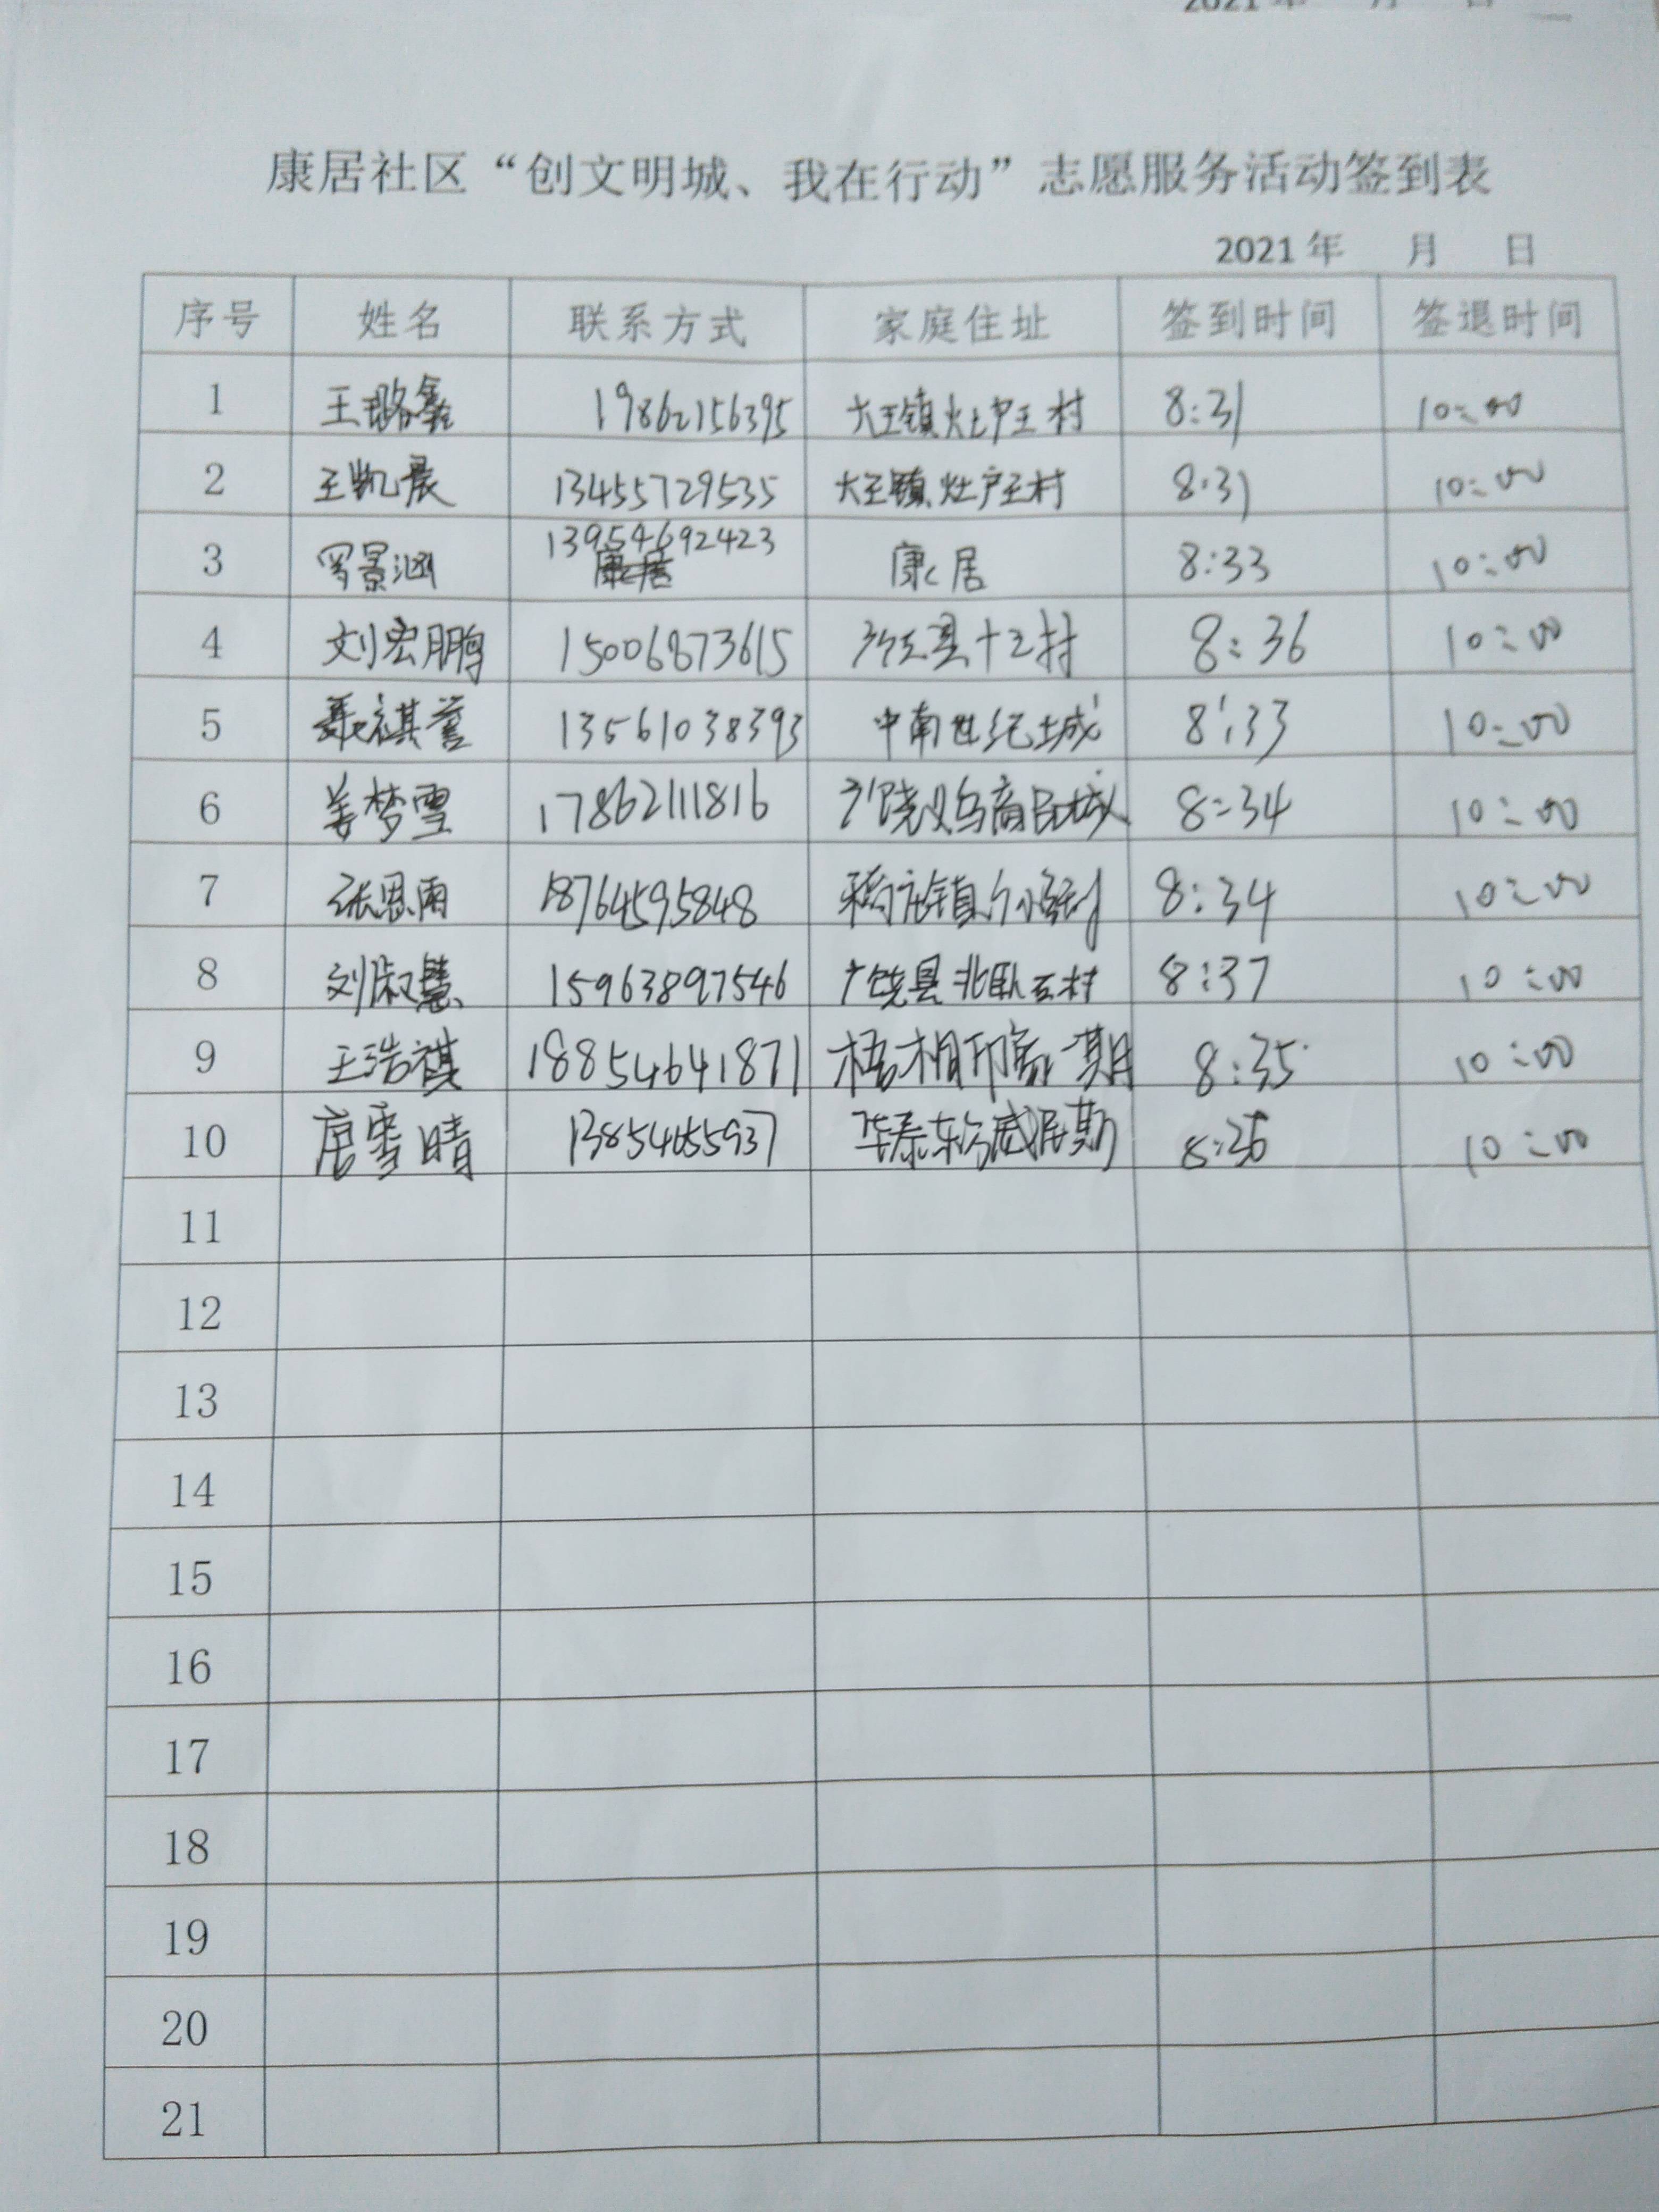 2021年 月 日
康居社区“创文明城、我在行动”志愿服务活动签到表
2021年 月 日
序号 姓名 联系方式 家庭住址 签到时间 签退时间
1 王璐鑫 19862156395 大王镇灶户王村 8:31 10:00
2 王凯晨 13455729535 大王镇灶户王村 8:31 10:00
3 罗景涵 13954692423 康居 8:33 10:00
4 刘宏鹏 15006873615 十二村 8:36 10:00
5 聂祺誉 13561038393 中南世纪城 8:33 10:00
6 姜梦雪 17862111816 广饶义乌商品城 8:34 10:00
7 张恩雨 18764595848 稻庄镇 8:34 10:00
8 刘淑慧 15963897546 广饶县北卧石村 8:37 10:00
9 王浩祺 18854641871 梧桐印象 期 8:35 10:00
10 唐雪晴 13854655937 华泰东方威尼斯 8:36 10:00
11
12
13
14
15
16
17
18
19
20
21